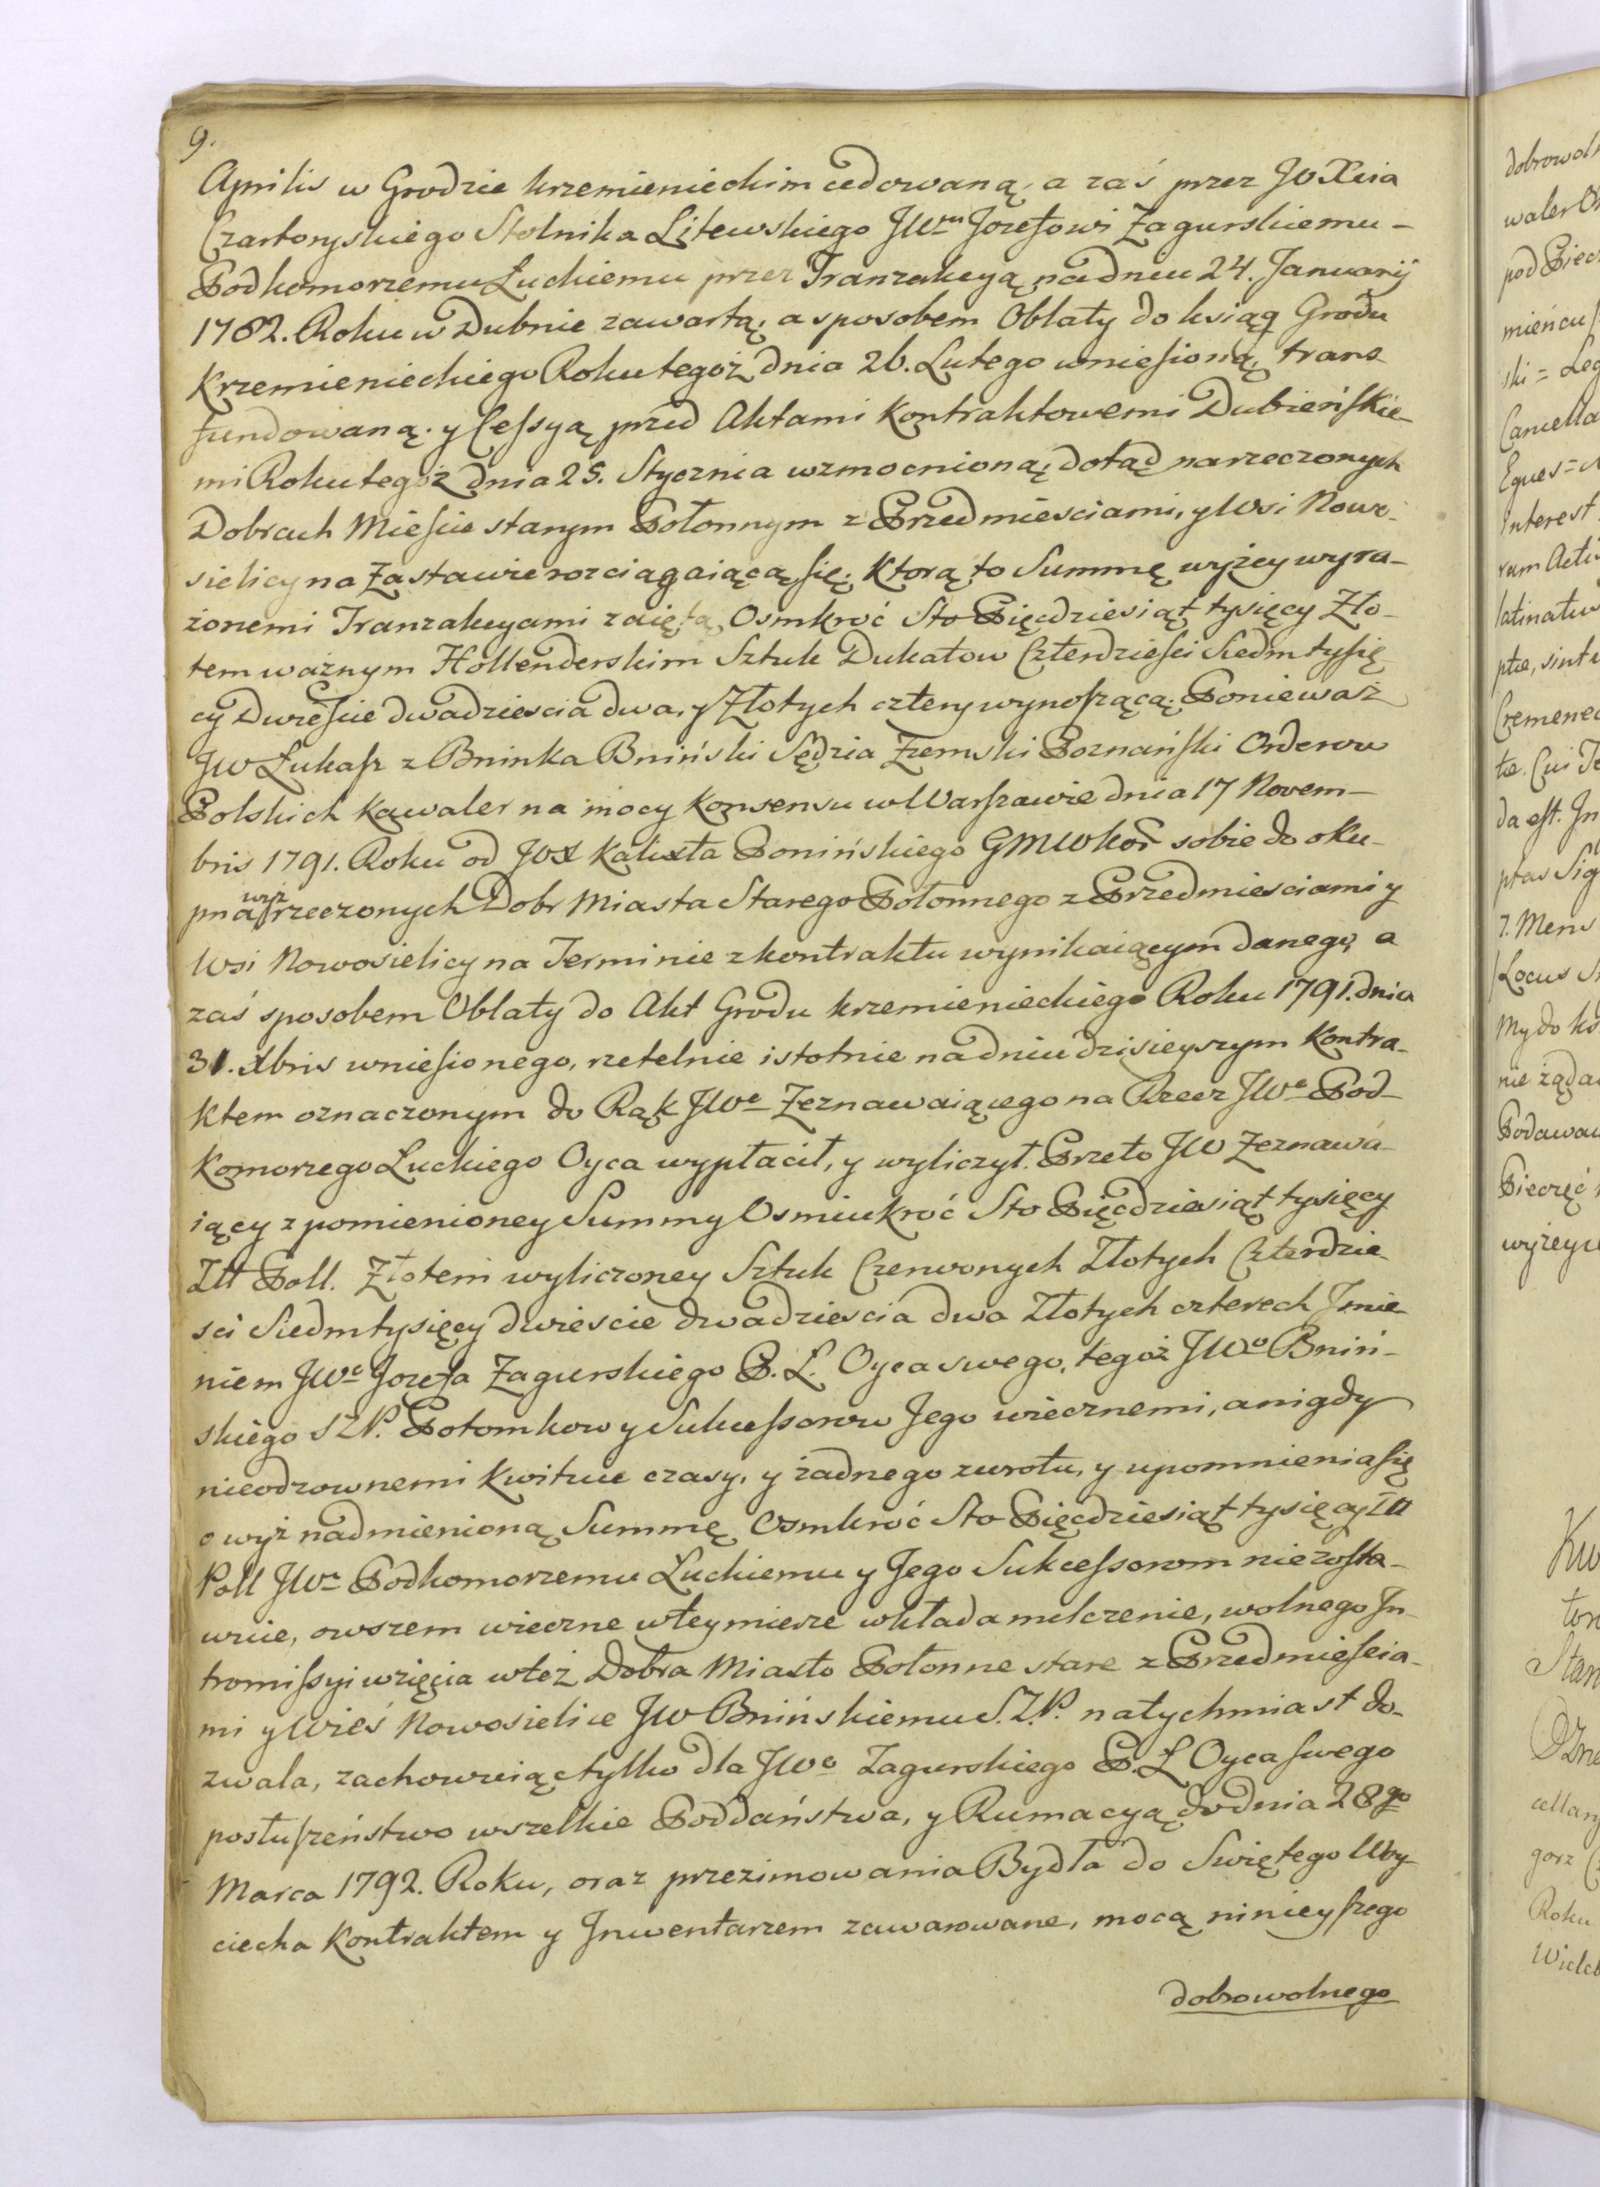 9.
Aprilis w Grodzie krzemienieckim cedowaną, a zaś przez JO Xcia
Czartoryskiego Stolnika Litewskiego JWmu Jozefowi Zagurskiemu –
Podkomorzemu Łuckiemu przez Tranzakcyą na dniu 24. Januarij
1782. Roku w Dubnie zawartą; a sposobem Oblaty do ksiąg Grodu
Krzemienieckiego Roku tegoż dnia 26. Lutego wniesioną, trans
fundowaną. y Cessyą przed Aktami Kontraktowemi Dubieńskie
mi Roku tegoż dnia 25. Stycznia wzmocnioną; dotąd na rzeczonych
Dobrach Mieście starym Połonnym z Przedmieściami, y Wsi Nowo-
sielicy na Zastawie rozciągaiącą się. Ktorą to Summę wyżey wyra-
żonemi Tranzakcyami zaiętą Osmkroć Sto Pięćdziesiąt tysięcy Zło-
tem ważnym Hollenderskim Sztuk Dukatow Czterdzieści Siedm tysię
cy Dwieście dwadzieścia dwa, y Złotych cztery wynoszącą; Ponieważ
JW Łukasz z Bninka Bniński Sędzia Ziemski Poznański Orderow
Polskich Kawaler na mocy Konsensu w Warszawie dnia 17 Novem–
bris 1791. Roku od JOX Kalixta Ponińskiego GMWKor sobie do oku-
pna wyż rzeczonych Dobr Miasta Starego Połonnego z Przedmieściami y
Wsi Nowosielicy na Terminie z kontraktu wynikaiącym danego, a
zaś sposobem Oblaty do Akt Grodu krzemienieckiego Roku 1791. dnia
31. Xbris wniesionego, rzetelnie istotnie na dniu dzisieyszym Kontra-
ktem oznaczonym do Rąk JWo Zeznawaiącego na Rzecz JWo Pod-
Komorzego Łuckiego Oyca wypłacił, y wyliczył. Przeto JW Zeznawa-
iący z pomienioney Summy Osmiukroć Sto Pięćdziesiąt tysięcy
Złł Poll. Złotem wyliczoney Sztuk Czerwonych Złotych Czterdzie
sci Siedm tysięcy dwieście dwadzieścia dwa Złotych czterech Imie
niem JWo Jozefa Zagurskiego P. Ł. Oyca swego, tegoż JWo Bniń-
skiego SZP. Potomkow y Sukcessorow Jego wiecznemi, a nigdy
nieodzownemi Kwituie czasy, y żadnego zwrotu, y upomnienia się
o wyż nadmienioną Summę Osmkroć Sto Pięćdziesiąt tysięcy Złł
Poll JWu Podkomorzemu Łuckiemu y Jego Sukcessorom niezosta-
wuie, owszem wieczne w tey mierze wkłada milczenie, wolnego In-
tromissyi wzięcia w też Dobra Miasto Połonne stare z Przedmieścia-
mi y Wieś Nowosielice JW Bnińskiemu S.Z.P. natychmiast do-
zwala, zachowuiąc tylko dla JWo Zagurskiego P. Ł Oyca swego
posłuszeństwo wszelkie Poddaństwa, y Rumacyą do dnia 28go
Marca 1792. Roku, oraz przezimowania Bydła do Swiętego Woy-
ciecha Kontraktem y Inwentarzem zawarowane, mocą ninieyszego
dobrowolnego